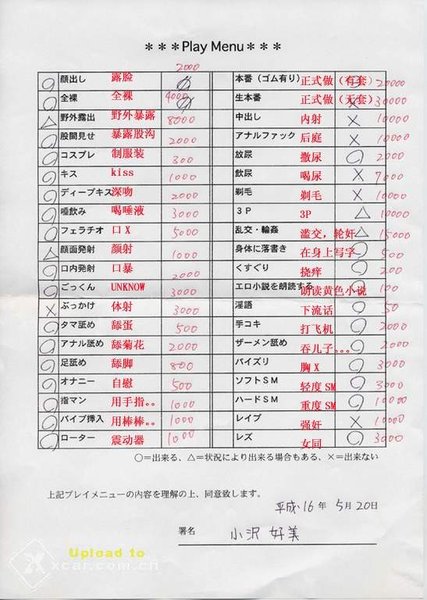 ＊＊＊Play Menu＊＊＊
2000
顔出し 露脸
全裸 全裸 4000
△ 野外露出 野外暴露 8000
股間見せ 暴露股沟 2000
コスプレ 制服装 300
キス kiss 1000
ディープキス 深吻 2000
唾飲み 喝唾液 3000
フェラチオ 口X 5000
△ 顔面発射 颜射 1000
口内発射 口暴 2000
ごっくん UNKNOW 3000
× ぶっかけ 体射 3000
タマ舐め 舔蛋 500
アナル舐め 舔菊花 2000
足舐め 舔脚 800
オナニー 自慰 500
指マン 用手指。。 1000
バイブ挿入 用棒棒。。 1000
ローター 震动器 1000
本番（ゴム有り） 正式做（有套） 20000
生本番 正式做（无套） 30000
中出し 内射 × 10000
アナルファック 后庭 × 10000
放尿 撒尿 ○ 2000
飲尿 喝尿 × 7000
剃毛 剃毛 × 10000
３Ｐ 3P △ 10000
乱交・輪姦 滥交，轮奸 △ 15000
身体に落書き 在身上写字 500
くすぐり 挠痒 200
エロ小説を朗読する 朗读黄色小说 100
淫語 下流话 500
手コキ 打飞机 2000
ザーメン舐め 吞儿子。。。
パイズリ 胸X 3000
ソフトＳＭ 轻度 SM 3000
ハードＳＭ 重度 SM
レイプ 强奸 × 10000
レズ 女同 3000
○＝出来る、△＝状況により出来る場合もある、×＝出来ない
上記プレイメニューの内容を理解の上、同意致します。
平成16年 5月20日
署名 小沢 好美
Upload to
xcar.com.cn